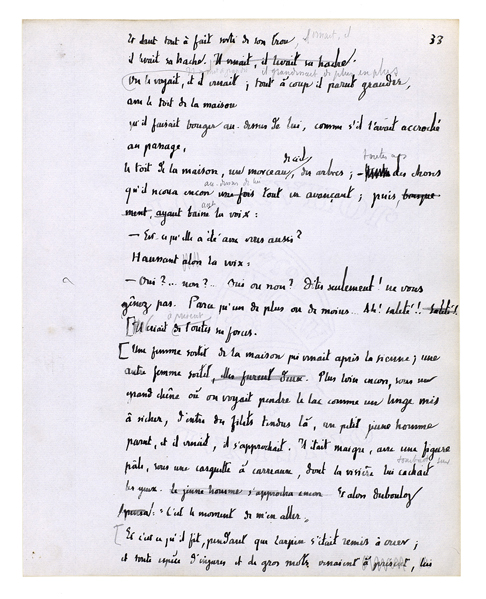 33
Et étant tout à fait sorti de son trou, il venait, il
il levait sa hache. Il venait, il levait sa hache.
il grandissait de plus en plus
On le voyait, et il venait ; tout à coup il parut grandir,
avec le toit de la maison
qu'il faisait bouger au-dessus de lui, comme s'il l'avait accroché
au passage,
de ciel toutes ces
le toit de la maison, un morceau, des arbres ; – des choses
au-dessus de lui
qu'il secoua encore une fois tout en avançant ; puis brusque-
ment, ayant baissé la voix :
— Est-ce qu'elle a été avec vous aussi ?
Haussant alors la voix :
— Oui ?... non ?.. Oui ou non ? Dites seulement ! ne vous
gênez pas. Parce qu'un de plus ou de moins... Ah ! saleté !! saleté !
à présent
Il criait de toutes ses forces.
Une femme sortit de la maison qui venait après la sienne ; une
autre femme sortit, elles furent deux. Plus loin encore, sous un
grand chêne où on voyait pendre le lac comme un linge mis
à sécher, d'entre des filets tendus là, un petit jeune homme
parut, et il venait, il s'approchait. Il était maigre, avec une figure
tombait sur
pâle, sous une casquette à carreaux, dont la visière lui cachait
les yeux. Le jeune homme s'approcha encore. Et alors Dubouloz
: « C'est le moment de m'en aller »,
Et c'est ce qu'il fit, pendant que s'était remis à crier ;
et toute espèce d'injures et de gros mots venaient à présent, lui